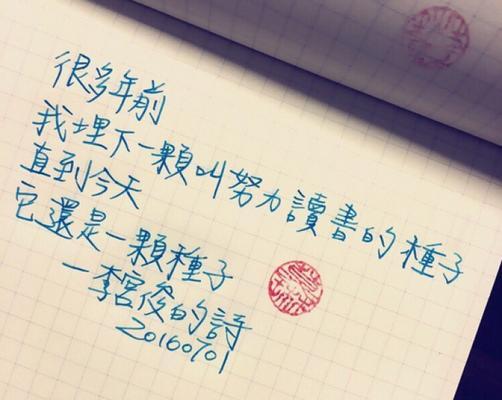 很多年前
我埋下一顆叫努力讀書的種子
直到今天
它還是一顆種子
—李宮俊的詩
20160701